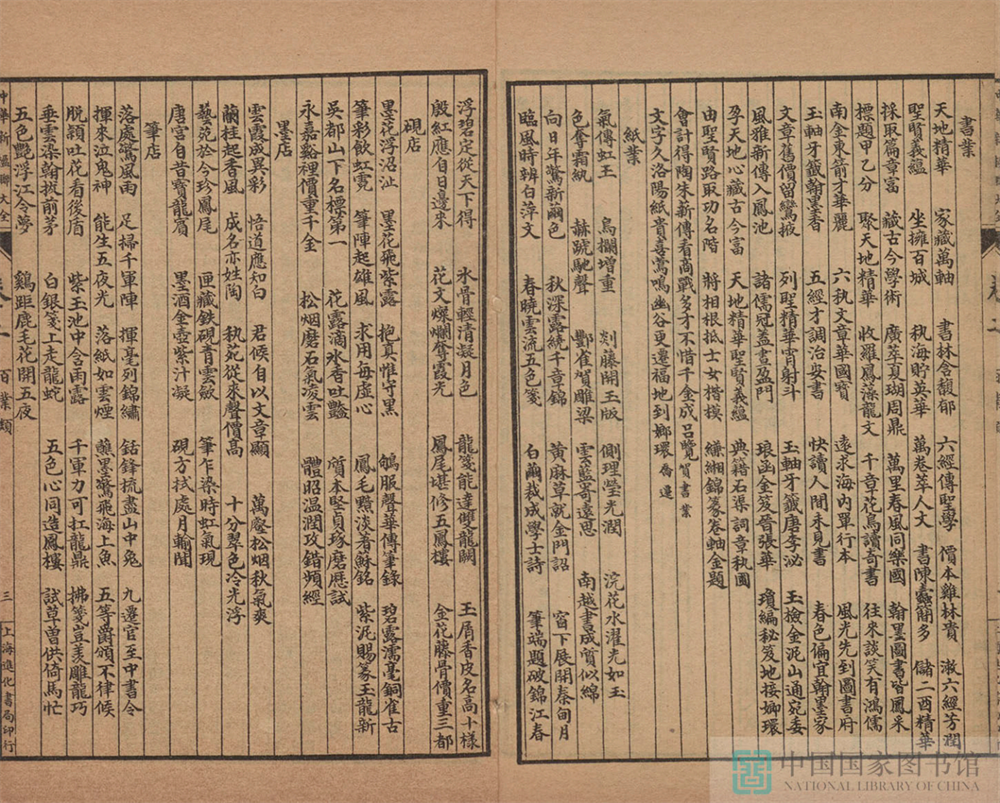 書業
天地精華 家藏萬軸 書林含馥郁 六經傳聖學 價本雞林貴 漱六經芳潤
聖賢義蘊 坐擁百城 執海貯英華 萬卷萃人文 書陳蠹簡多 儲二酉精華
採取篇章富 藏古今學術 廣萃夏瑚周鼎 萬里春風同樂國 翰墨圖書皆鳳采
標題甲乙分 聚天地精華 收羅鳳藻龍文 千章花鳥讀奇書 往來談笑有鴻儒
南金東箭才華麗 六執文章華國寶 遠求海內單行本 風光先到圖書府
玉軸牙籤翰墨香 五經才調治安書 快讀人間未見書 春色偏宜翰墨家
文章舊價留鸞掖 列聖精華宵射斗 玉軸牙籤唐李泌 玉檢金泥山通宛委
風雅新傳入鳳池 諸儒冠蓋晝盈門 琅函金笈晉張華 瓊編秘笈地接嫏環
孕天地心藏古今富 天地精華聖賢義蘊 典籍石渠詞章執圃
由聖賢路取功名階 將相根柢士女楷模 縹緗錦篆卷軸金題
會計得陶朱薪傳看商戰多才不惜千金成呂覽 賀書業
文字久洛陽紙貴喜鶯鳴幽谷更遷福地到嫏環 喬遷
紙業
氣傳虹玉 烏攔增重 剡藤開玉版 側理瑩光潤 浣花水濯光如玉
色奪霜紈 赫蹏馳聲 酆雀賀雕梁 雲藍寄遠思 南越書成質似綿
向日年驚新繭色 秋深露繞千章錦 黃麻草就金門詔 窗下展開秦甸月
臨風時辨白萍文 春曉雲流五色箋 白繭裁成學士詩 筆端題破錦江春
浮碧定從天下得 氷骨輕清凝月色 龍箋能達雙龍闕 玉屑香皮名高十樣
殷紅應自日邊來 花文燦爛奪霞光 鳳尾堪修五鳳樓 金花藤骨價重三都
硯店
墨花浮沼沚 墨花飛紫露 抱真惟守黑 鴝眼聲華傳筆錄 碧露濡毫銅雀古
筆彩飲虹霓 筆陣起雄風 求用每虛心 鳳毛黯淡著穌銘 紫泥賜篆玉龍新
吳都山下名標第一 花露滴水香吐豔 質本堅貞琢磨歷試
永嘉谿裡價重千金 松烟磨石氣凌雲 體昭溫潤攻錯頻經
墨店
雲霞成異彩 悟道應知白 君候自以文章顯 萬壑松烟秋氣爽
繭桂起香風 成名亦姓陶 執苑從來聲價高 十分翠色冷光浮
藝苑於今珍鳳尾 匣藏鐵硯青雲斂 筆乍染時虹氣現
唐宮自昔寶龍賓 墨酒金壺紫汁凝 硯方拭處月輪開
筆店
落處驚風雨 足掃千軍陣 揮毫列錦繡 銛鋒梳盡山中兔 九遷官至中書令
揮來泣鬼神 能生五夜光 落紙如雲煙 蘸墨驚飛海上魚 五等爵頒不律候
脫穎吐花看後盾 柴玉池中含雨露 千軍力可扛龍鼎 拂箋豈羡雕龍巧
垂雲染翰拔前茅 白銀箋上走龍蛇 五色心同造鳳樓 試草曾供倚馬忙
五色艷浮江令夢 鷄距鹿毛花開五夜
中華新編聯大全
百業類
三
上海進化書局印行
中国国家图书馆
NATIONAL LIBRARY OF CHINA